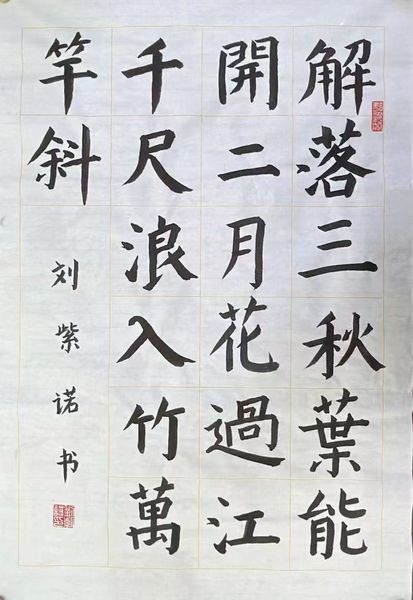 解落三秋葉能
開二月花過江
千尺浪入竹萬
竿斜
刘紫诺书